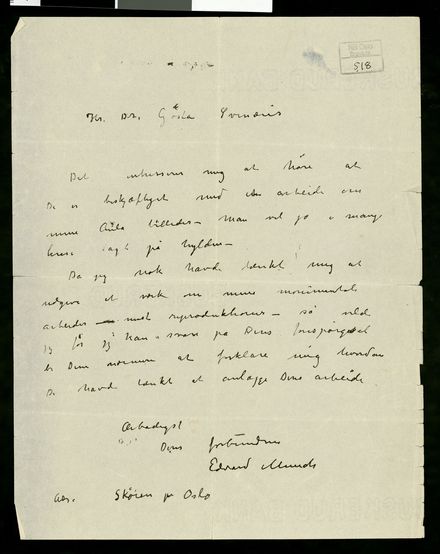 518
Hr. Dr. Gösta Svenæus
Det interesserer mig at høre at
De er beskjæftiget med et arbeide om
mine Aula billeder – Man vil jo i mange
lagt på hylden –
Da jeg nok havde tænkt mig at
udgive et værk om mine monumentale
arbeider – med reproduktioner – så vilde
jeg før jeg kan svare på Deres forespørgsel
be Dem nærmere at forklare mig hvordan
De havde tænkt at anlægge Deres arbeide
Ærbødigst
Deres forbundne
Edvard Munch
Adr. Skøien pr Oslo